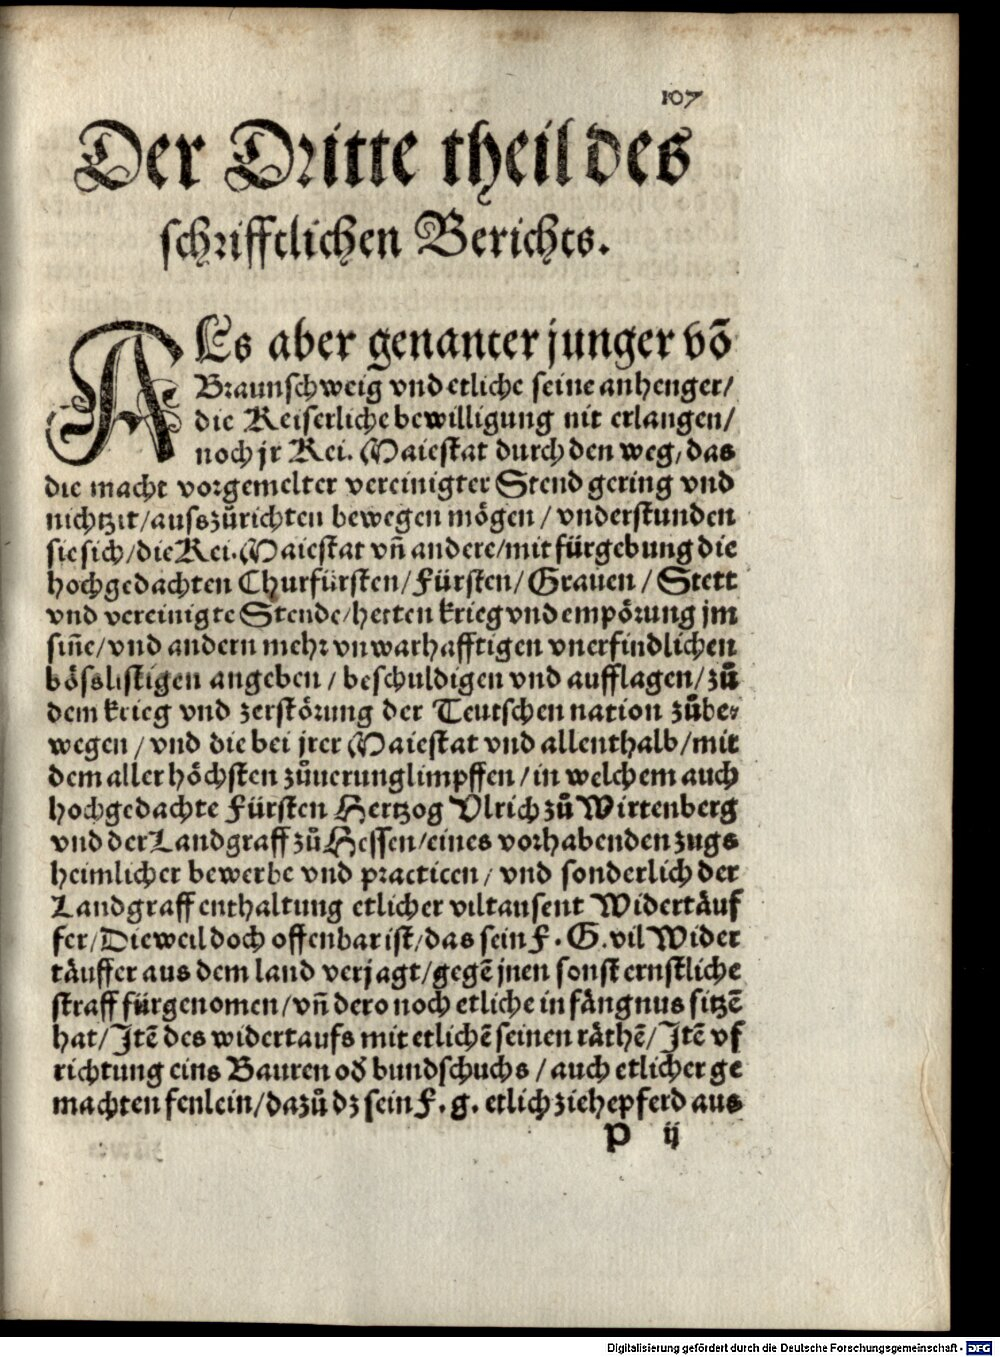 107
Der Dritte theil des
schrifftlichen Berichts.
ALs aber genanter junger võ
Braunschweig vnd etliche seine anhenger/
die Keiserliche bewilligung nit erlangen/
noch jr Kei. Maiestat durch den weg, das
die macht vorgemelter vereinigter Stend gering vnd
nichtzit/auszůrichten bewegen mögen/vnderstunden
sie sich/die Kei. Maiestat vñ andere/mit fürgebung die
hochgedachten Churfürsten/Fürsten/Grauen/Stett
vnd vereinigte Stende/hetten krieg vnd empörung jm
siñe/vnd andern mehr vnwarhafftigen vnerfindlichen
böslistigen angeben/beschuldigen vnd aufflagen/zů
dem krieg vnd zerstörung der Teutschen nation zůbe-
wegen/vnd die bei jrer Maiestat vnd allenthalb/mit
dem aller höchsten zůuerunglimpffen/in welchem auch
hochgedachte Fürsten Hertzog Vlrich zů Wirtenberg
vnd der Landgraff zů Hessen/eines vorhabenden zugs
heimlicher bewerbe vnd practicen/vnd sonderlich der
Landgraff enthaltung etlicher viltausent Widertäuf
fer/Dieweil doch offenbar ist/das sein F. G. vil Wider
täuffer aus dem land verjagt/gegẽ jnen sonst ernstliche
straff fürgenomen/vñ dero noch etliche in fängnus sitzẽ
hat/Jtẽ des widertaufs mit etlichẽ seinen räthẽ/Jtẽ vf
richtung eins Bauren od̕ bundschuchs/auch etlicher ge
machten fenlein/dazů dz sein F. g. etlich ziehepferd aus
P ij
Digitalisierung gefördert durch die Deutsche Forschungsgemeinschaft - DFG